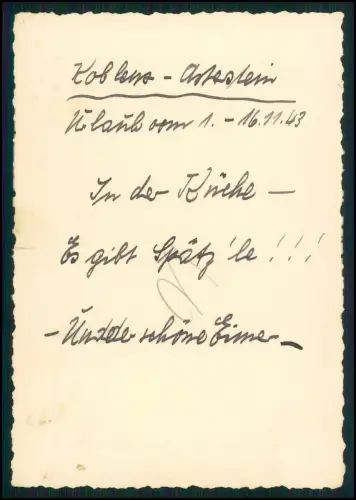 Koblenz - Asterstein
Urlaub vom 1. - 16.11.43
In der Küche —
Es gibt Spätz'le !!!
- Und der schöne Eimer —